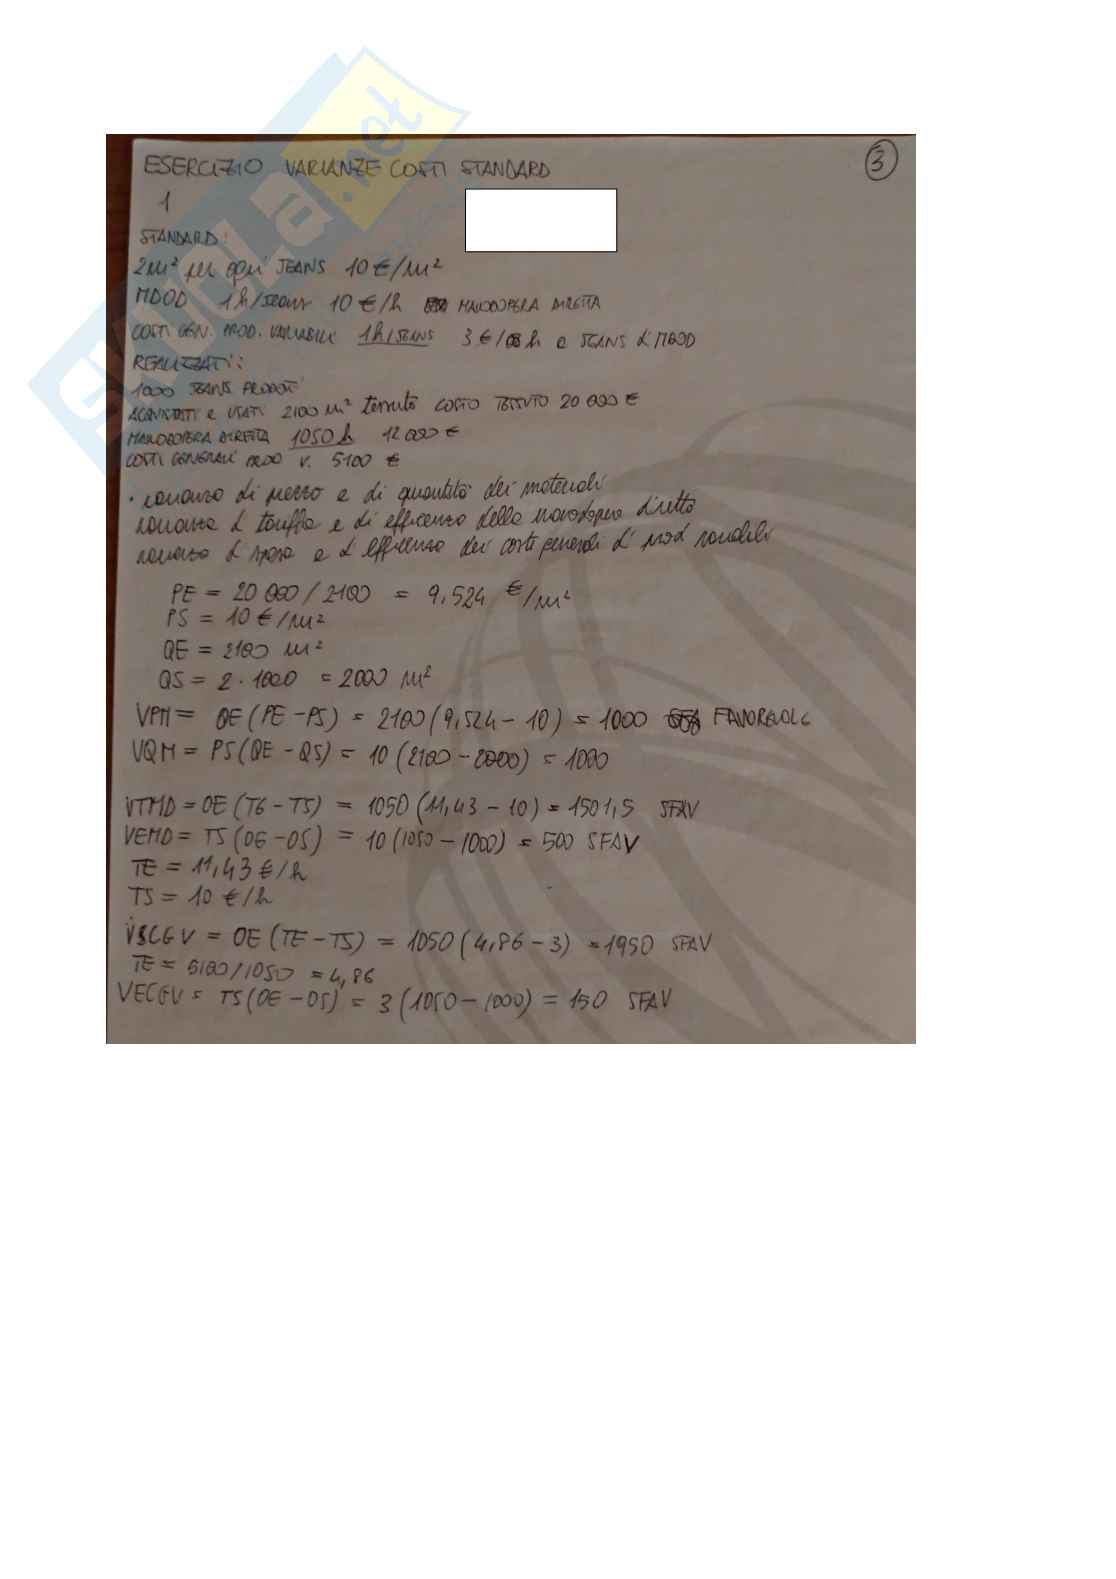 ESERCIZIO VARIANZE COSTI STANDARD
3
1
STANDARD:
2 m² per ogni JEANS 10 €/m²
MDOD 1h/JEANS 10 €/h MANODOPERA DIRETTA
COSTI GEN. PROD. VARIABILI 1h/JEANS 3 €/h e JEANS d MDOD
REALIZZATI:
1000 JEANS PRODOTTI
ACQUISTATI e USATI 2100 m² tessuto COSTO TESSUTO 20 000 €
MANODOPERA DIRETTA 1050 h 12 000 €
COSTI GENERALI PROD V. 5100 €
• varianza di prezzo e di quantità dei materiali
varianza d tariffa e di efficenza della manodopera diretta
varianza d spesa e d efficenza dei costi generali d prod variabili
PE = 20 000 / 2100 = 9,524 €/m²
PS = 10 €/m²
QE = 2100 m²
QS = 2 · 1000 = 2000 m²
VPM = QE (PE - PS) = 2100 (9,524 - 10) = 1000 FAVOREVOLE
VQM = PS (QE - QS) = 10 (2100 - 2000) = 1000
VTMD = OE (TE - TS) = 1050 (11,43 - 10) = 1501,5 SFAV
VEMD = TS (OE - OS) = 10 (1050 - 1000) = 500 SFAV
TE = 11,43 €/h
TS = 10 €/h
VSCGV = OE (TE - TS) = 1050 (4,86 - 3) = 1950 SFAV
TE = 5100/1050 = 4,86
VECGV = TS (OE - OS) = 3 (1050 - 1000) = 150 SFAV
SKUOLA.net